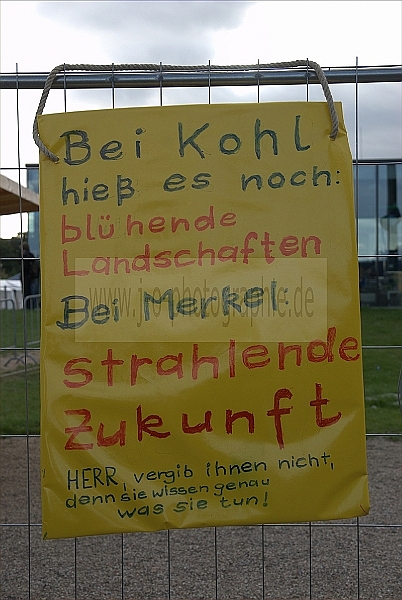 Bei Kohl
hieß es noch:
blühende
Landschaften
Bei Merkel:
strahlende
Zukunft
HERR, vergib ihnen nicht,
denn sie wissen genau
was sie tun!